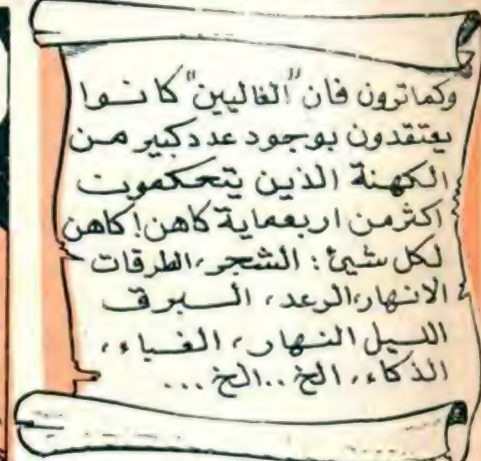 وكما ترون فان "الغاليين" كانوا
يعتقدون بوجود عدد كبير من
الكهنة الذين يتحكموت
اكثر من اربعماية كاهن! كاهن
لكل شيئ: الشجر، الطرقات
الانهار، الرعد، السبرق
الليل النهار، الغباء،
الذكاء، الخ.. الخ...